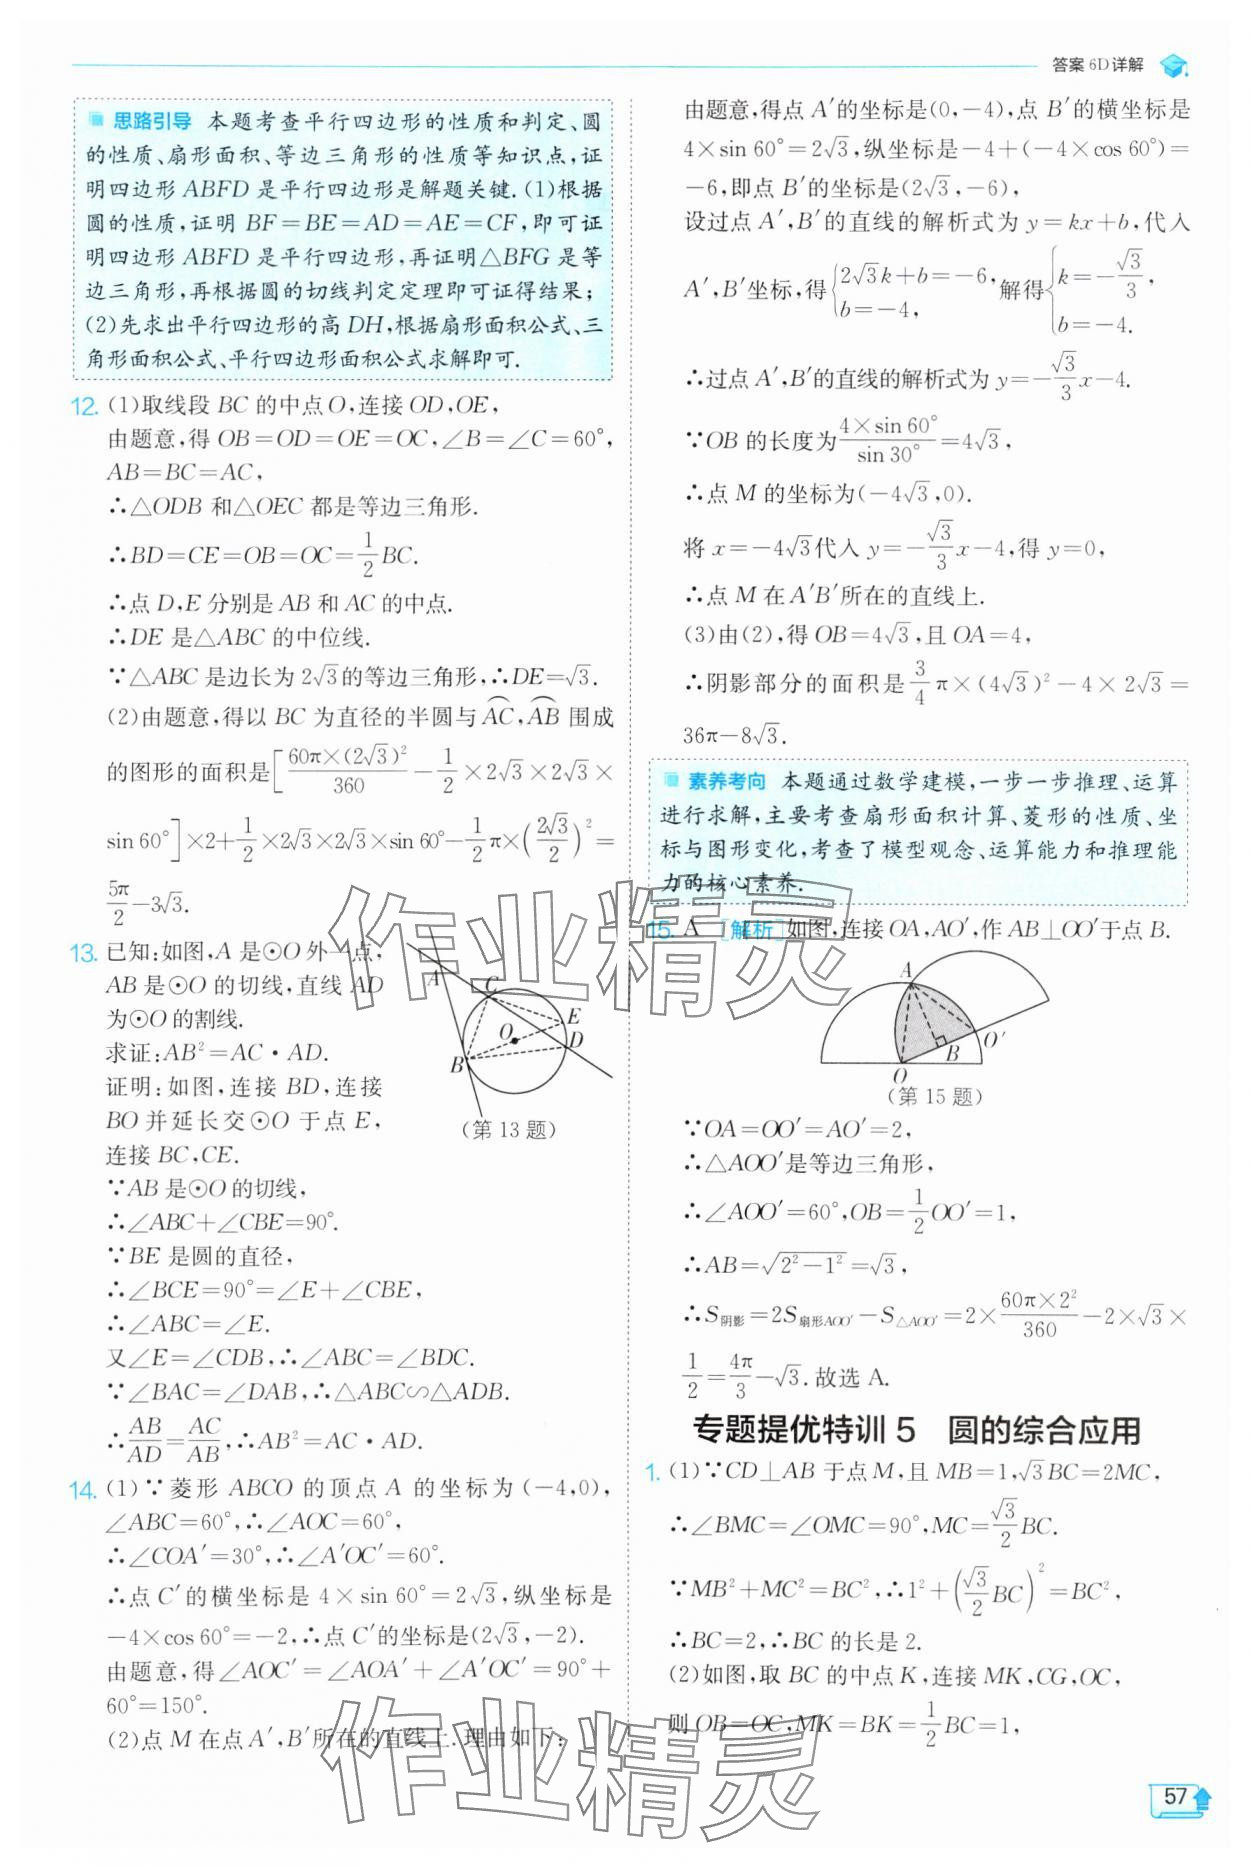 答案 6D 详解
思路引导 本题考查平行四边形的性质和判定、圆
的性质、扇形面积、等边三角形的性质等知识点,证
明四边形 ABFD 是平行四边形是解题关键.(1)根据
圆的性质,证明 BF=BE=AD=AE=CF,即可证
明四边形 ABFD 是平行四边形,再证明△BFG 是等
边三角形,再根据圆的切线判定定理即可证得结果;
(2)先求出平行四边形的高 DH,根据扇形面积公式、三
角形面积公式、平行四边形面积公式求解即可.
12. (1)取线段 BC 的中点 O,连接 OD,OE,
由题意,得 OB=OD=OE=OC,∠B=∠C=60°,
AB=BC=AC,
∴△ODB 和△OEC 都是等边三角形.
∴BD=CE=OB=OC=\frac{1}{2}BC.
∴点 D,E 分别是 AB 和 AC 的中点.
∴DE 是△ABC 的中位线.
∵△ABC 是边长为 2√3 的等边三角形,∴DE=√3.
(2)由题意,得以 BC 为直径的半圆与\overset{\frown}{AC},\overset{\frown}{AB} 围成
的图形的面积是[\frac{60π×(2√3)²}{360}-\frac{1}{2}×2√3×2√3×
sin 60°]×2+\frac{1}{2}×2√3×2√3×sin 60°-\frac{1}{2}π×(\frac{2√3}{2})²=
\frac{5π}{2}-3√3.
13. 已知:如图,A 是⊙O 外一点,
AB 是⊙O 的切线,直线 AD
为⊙O 的割线.
求证:AB²=AC·AD.
证明:如图,连接 BD,连接
BO 并延长交⊙O 于点 E,
连接 BC,CE.
A
C
E
O
D
B
(第 13 题)
∵AB 是⊙O 的切线,
∴∠ABC+∠CBE=90°.
∵BE 是圆的直径,
∴∠BCE=90°=∠E+∠CBE,
∴∠ABC=∠E.
又∠E=∠CDB,∴∠ABC=∠BDC.
∵∠BAC=∠DAB,∴△ABC∽△ADB.
∴\frac{AB}{AD}=\frac{AC}{AB},∴AB²=AC·AD.
14. (1)∵菱形 ABCO 的顶点 A 的坐标为(-4,0),
∠ABC=60°,∴∠AOC=60°,
∴∠COA′=30°,∴∠A′OC′=60°.
∴点 C′的横坐标是 4×sin 60°=2√3,纵坐标是
-4×cos 60°=-2,∴点 C′的坐标是(2√3,-2).
由题意,得∠AOC′=∠AOA′+∠A′OC′=90°+
60°=150°.
(2)点 M 在点 A′,B′所在的直线上.理由如下:
由题意,得点 A′的坐标是(0,-4),点 B′的横坐标是
4×sin 60°=2√3,纵坐标是-4+(-4×cos 60°)=
-6,即点 B′的坐标是(2√3,-6),
设过点 A′,B′的直线的解析式为 y=kx+b,代入
A′,B′坐标,得{2√3k+b=-6, b=-4, 解得{k=-\frac{√3}{3}, b=-4.
∴过点 A′,B′的直线的解析式为 y=-\frac{√3}{3}x-4.
∵OB 的长度为\frac{4×sin 60°}{sin 30°}=4√3,
∴点 M 的坐标为(-4√3,0).
将 x=-4√3代入 y=-\frac{√3}{3}x-4,得 y=0,
∴点 M 在 A′B′所在的直线上.
(3)由(2),得 OB=4√3,且 OA=4,
∴阴影部分的面积是\frac{3}{4}π×(4√3)²-4×2√3=
36π-8√3.
素养考向 本题通过数学建模,一步一步推理、运算
进行求解,主要考查扇形面积计算、菱形的性质、坐
标与图形变化,考查了模型观念、运算能力和推理能
力的核心素养.
15. A [解析]如图,连接 OA,AO′,作 AB⊥OO′于点 B.
A
O′
B
O
(第 15 题)
∵OA=OO′=AO′=2,
∴△AOO′是等边三角形,
∴∠AOO′=60°,OB=\frac{1}{2}OO′=1,
∴AB=\sqrt{2²-1²}=√3,
∴S阴影=2S扇形AOO′-S△AOO′=2×\frac{60π×2²}{360}-2×√3×
\frac{1}{2}=\frac{4π}{3}-√3.故选 A.
专题提优特训 5 圆的综合应用
1. (1)∵CD⊥AB 于点 M,且 MB=1,√3BC=2MC,
∴∠BMC=∠OMC=90°,MC=\frac{√3}{2}BC.
∵MB²+MC²=BC²,∴1²+(\frac{√3}{2}BC)²=BC²,
∴BC=2,∴BC 的长是 2.
(2)如图,取 BC 的中点 K,连接 MK,CG,OC,
则 OB=OC,MK=BK=\frac{1}{2}BC=1,
57
作业精灵
作业精灵